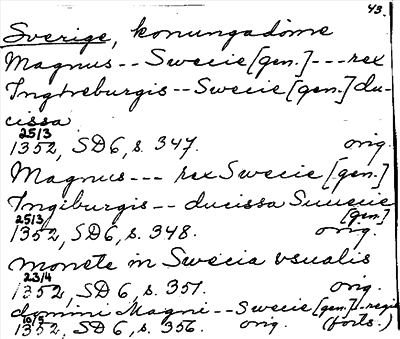 43.
Sverige, konungadöme
Magnus -- Swecie [gen.] --- rex
Ingibreburgis -- Swecie [gen.] du-
cissa
25/3
1352, SD6, s. 347. orig.
Magnus --- rex Swecie [gen.]
Ingiburgis -- ducissa Suuecie
[gen.]
25/3
1352, SD6, s. 348. orig.
monete in Swecia vsualis
23/4
1352, SD6, s. 351. orig.
domini Magni -- Swecie [gen.] - regis
1352, SD6, s. 356. orig. (forts.)